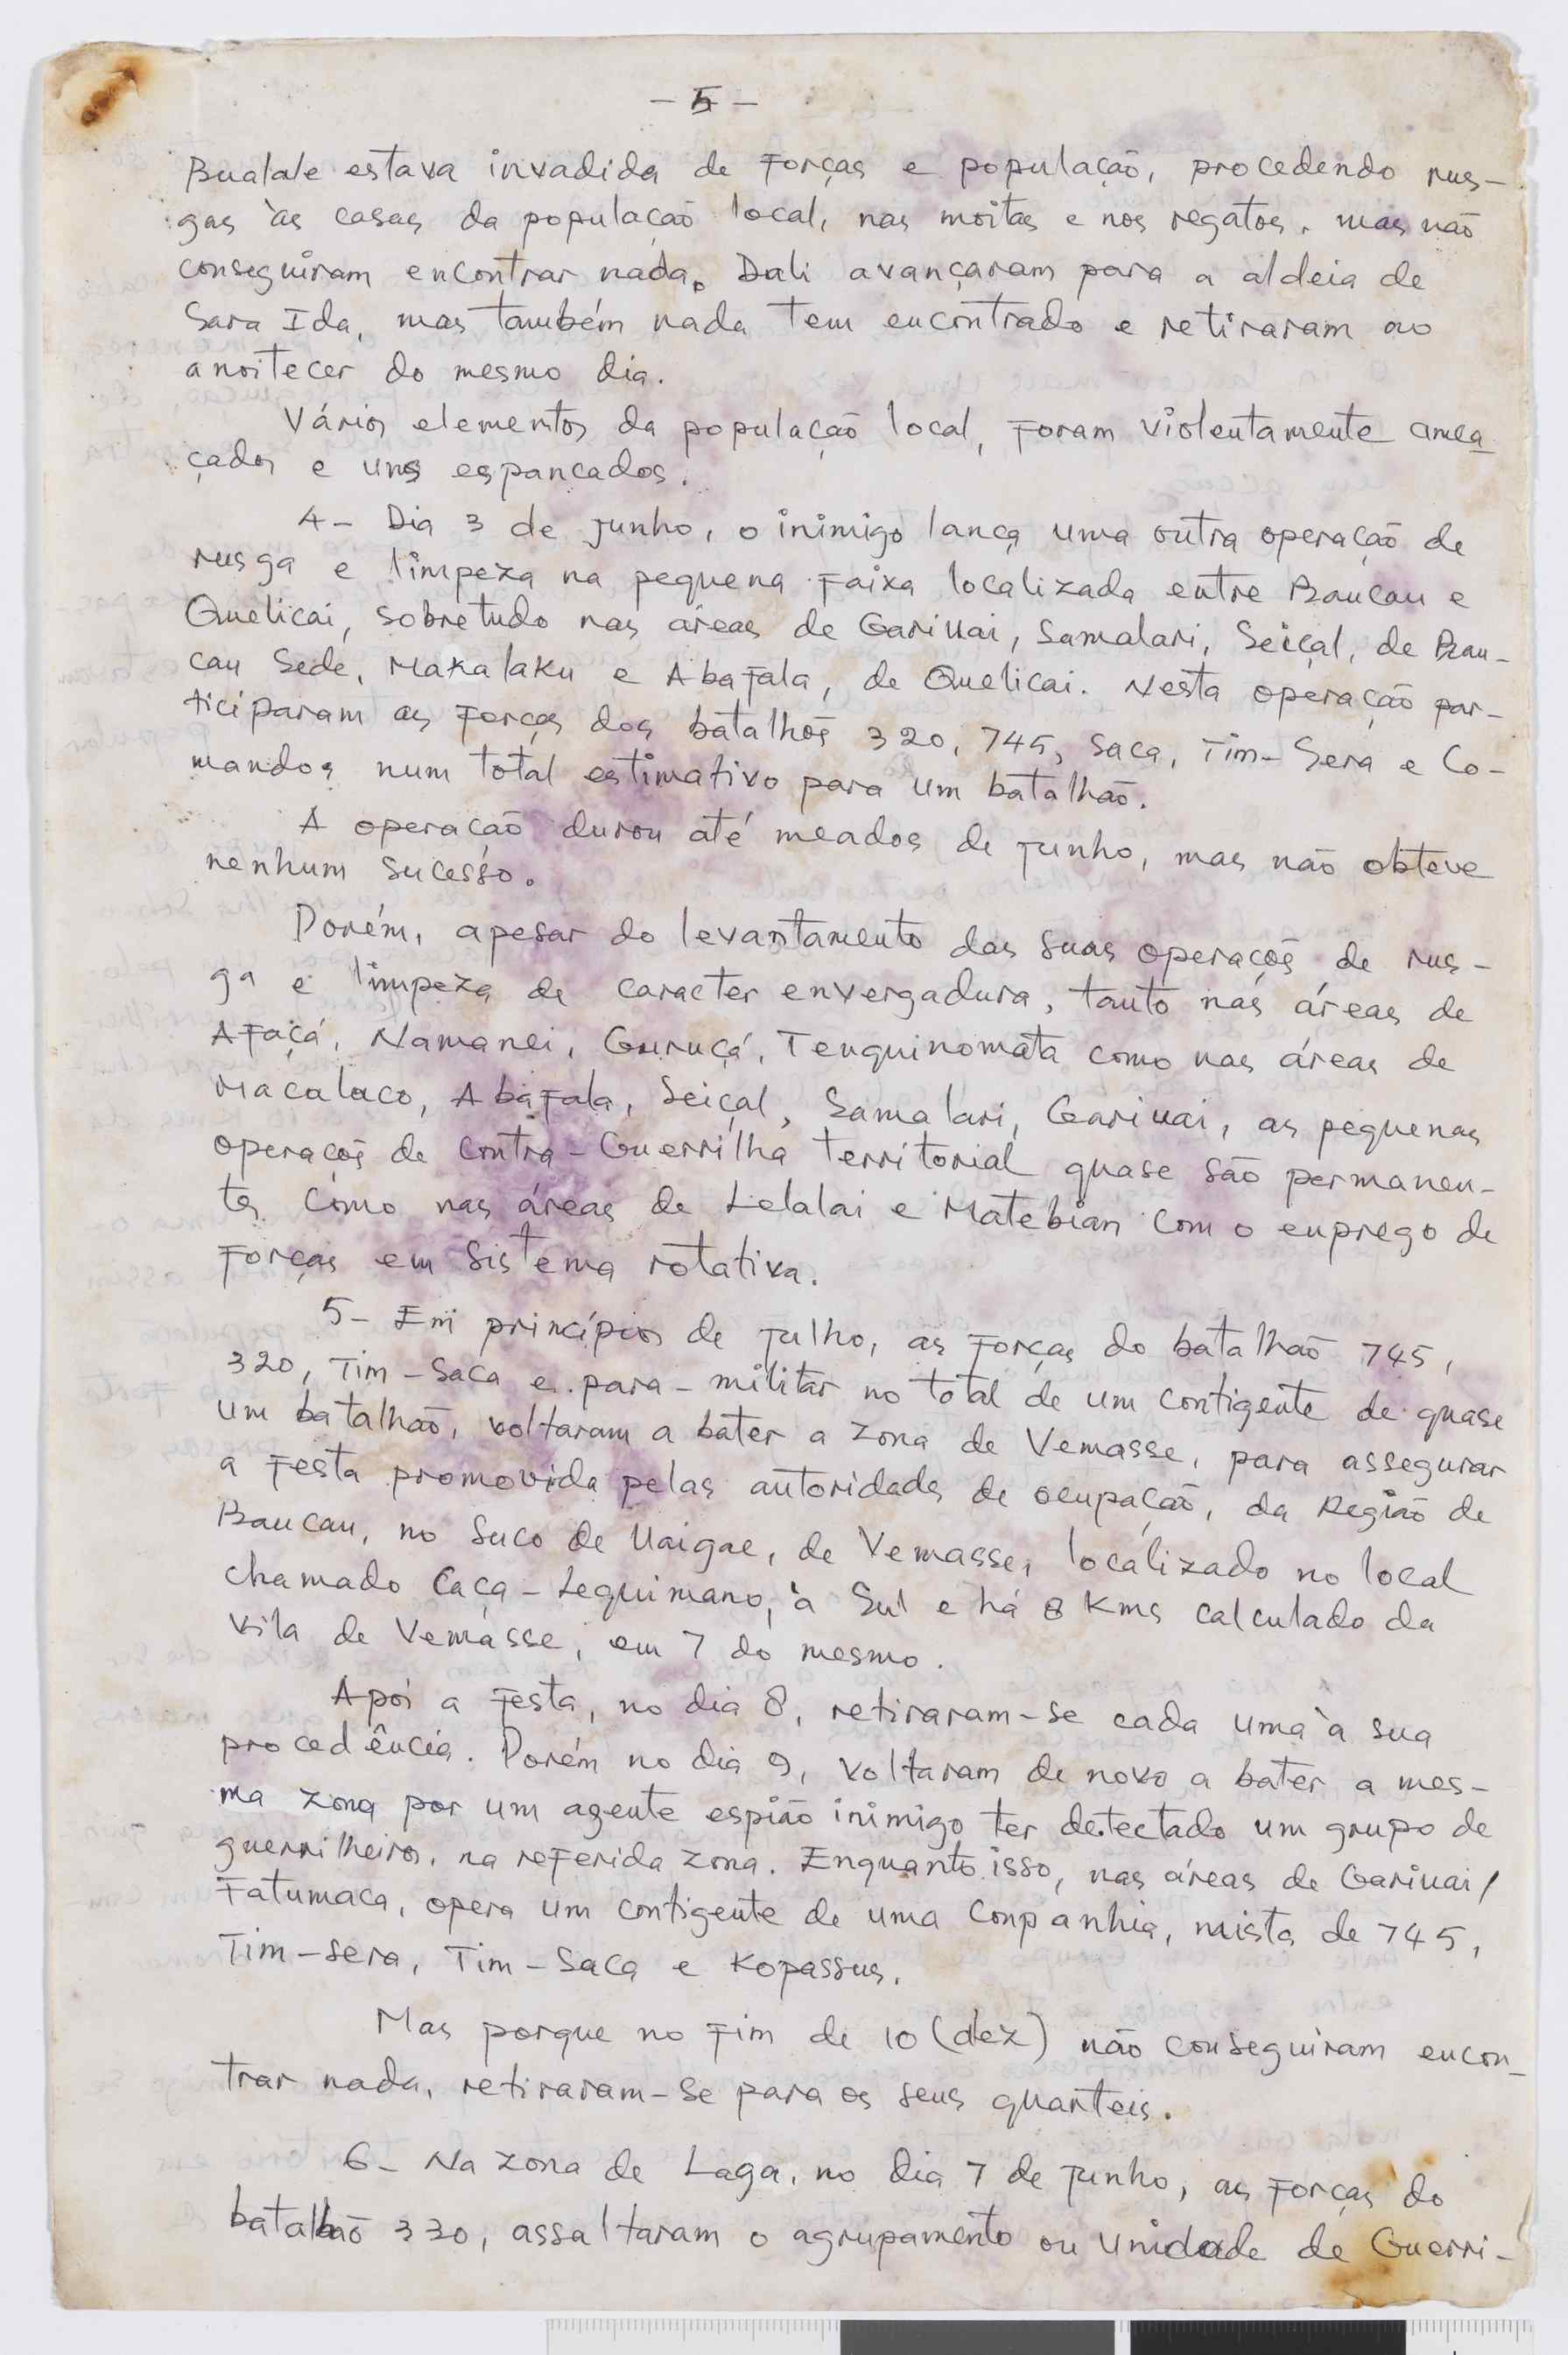 - 5 -
Bualale estava invadida de Forças e população, procedendo rus-
gas às casas da população local, nas moitas e nos regatos, mas não
conseguiram encontrar nada. Dali avançaram para a aldeia de
Sara Ida, mas também nada tem encontrado e retiraram ao
anoitecer do mesmo dia.
Vários elementos da população local, foram violentamente amea
çados e uns espancados.
4- Dia 3 de junho, o inimigo lança uma outra operação de
rusga e limpeza na pequena faixa localizada entre Baucau e
Quelicai, sobretudo nas áreas de Gariuai, Samalari, Seiçal, de Bau-
cau Sede, Makalaku e Abafala, de Quelicai. Nesta operação par-
ticiparam as forças dos batalhões 320, 745, Saca, Tim-Sera e Co-
mandos num total estimativo para um batalhão.
A operação durou até meados de junho, mas não obteve
nenhum sucesso.
Porém, apesar do levantamento das suas operações de rus-
ga e limpeza de caracter envergadura, tanto nas áreas de
Afaçá, Namanei, Guruçá, Tenquinomata como nas áreas de
Macalaco, Abafala, Seiçal, Samalari, Gariuai, as pequenas
operações de Contra-Guerrilha territorial quase são permanen-
tes como nas áreas de Lelalai e Matebian com o enprego de
Forças em Sistema rotativa.
5- Em princípios de julho, as forças do batalhão 745,
320, Tim-Saca e para-militar no total de um contigente de quase
um batalhão, voltaram a bater a zona de Vemasse, para assegurar
a festa promovida pelas autoridades de ocupação, da Região de
Baucau, no Suco de Uaigae, de Vemasse, localizado no local
chamado Caça-Lequimano, à Sul e há 8 Kms calculado da
vila de Vemasse, em 7 do mesmo.
Apói a festa, no dia 8, retiraram-se cada uma à sua
procedência. Porém no dia 9, voltaram de novo a bater a mes-
ma zona por um agente espião inimigo ter detectado um grupo de
guerrilheiros, na referida zona. Enquanto isso, nas áreas de Gariuai/
Fatumaca, opera um contigente de uma Conpanhia, mista de 745,
Tim-sera, Tim-Saca e Kopassus.
Mas porque no fim de 10 (dez) não conseguiram encon-
trar nada, retiraram-se para os seus quarteis.
6- Na zona de Laga, no dia 7 de junho, as forças do
batalhão 330, assaltaram o agrupamento ou Unidade de Guerri-